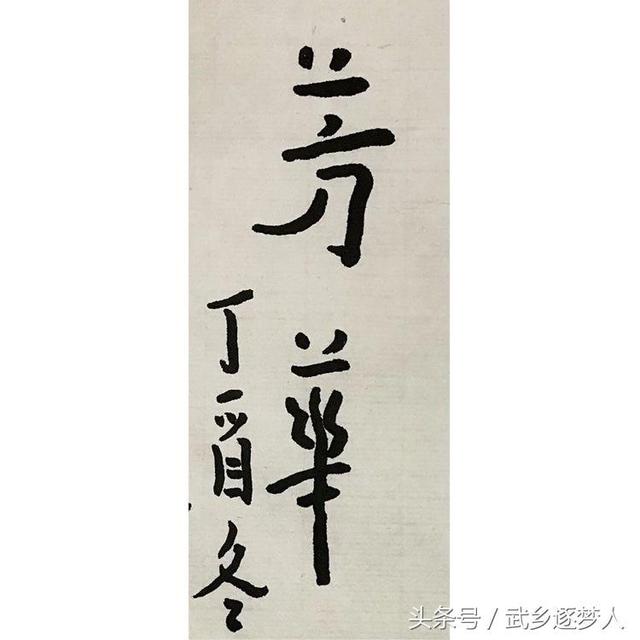 芳華
丁酉冬
头条号／武乡逐梦人